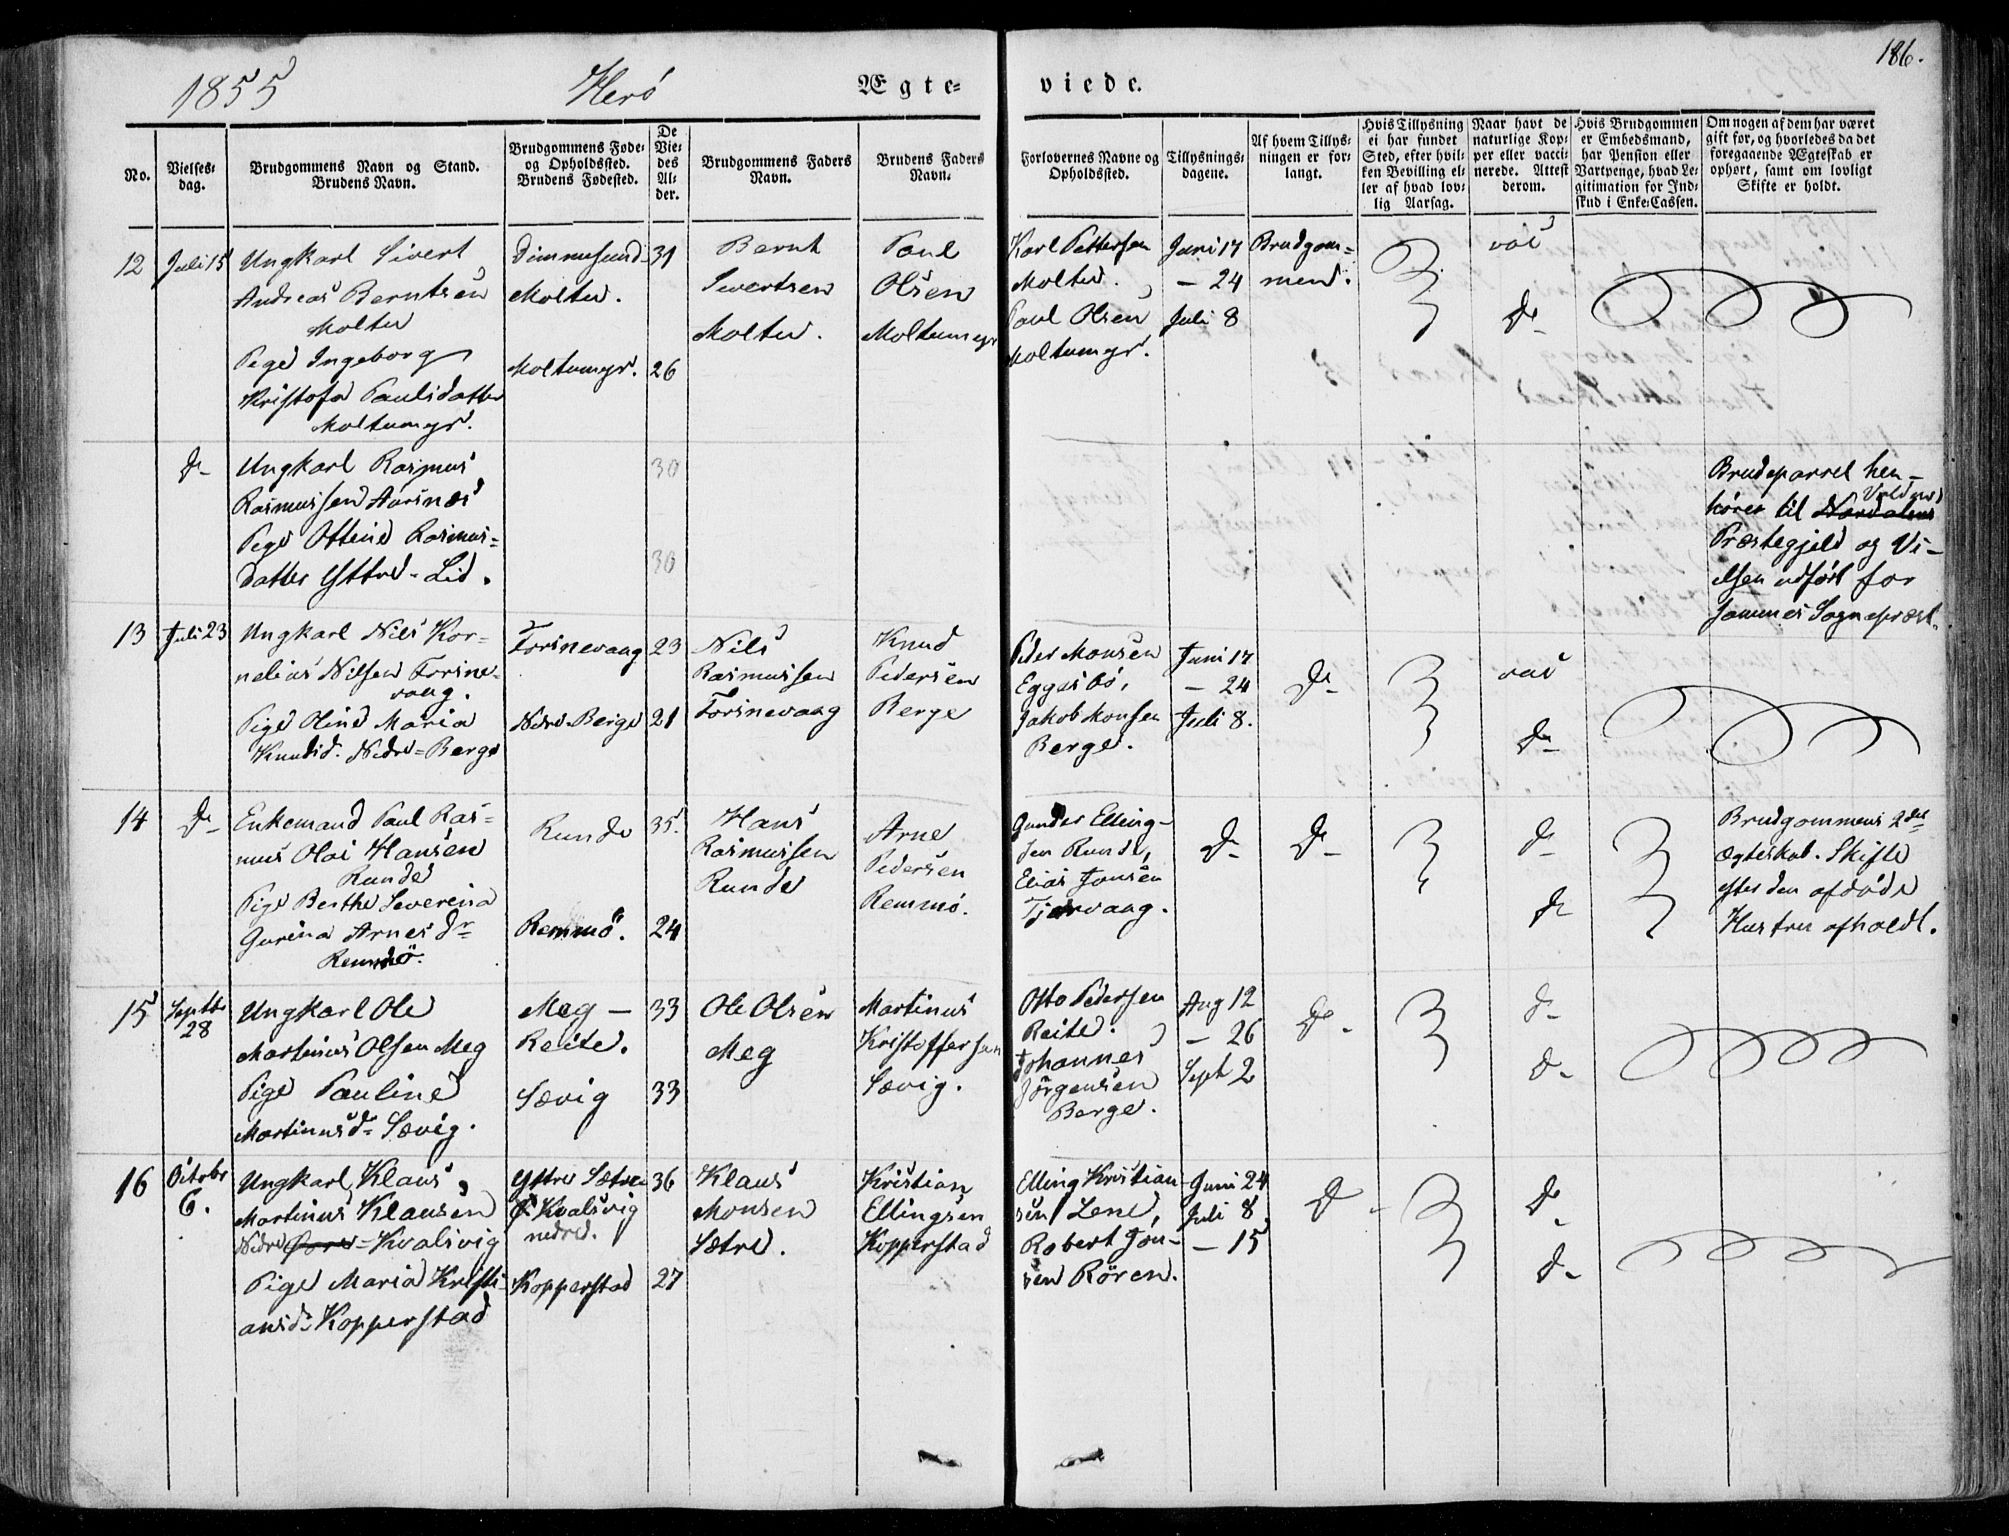 1855 Herö Ægte-
viede. 186.
No.
Vielses-
dag.
Brudgommens Navn og Stand.
Brudens Navn.
Brudgommens Føde-
og Opholdssted.
Brudens Fødested.
De
Vie-
des
Al-
der.
Brudgommens Faders
Navn.
Brudens Faders
Navn.
Forlovernes Navne og
Opholdssted.
Tillysnings-
dagene.
Af hvem Tillys-
ningen er for-
langt.
Hvis Tillysning
ei har fundet
Sted, efter hvil-
ken Bevilling el-
ler af hvad lov-
lig Aarsag.
Naar havt de
naturlige Kop-
per eller vacci-
nerede. Attest
derom.
Hvis Brudgommen
er Embedsmand,
har Pension eller
Vartpenge, hvad Le-
gitimation for Ind-
skud i Enke-Cassen.
Om nogen af dem har været
gift før, og hvorledes da det
foregaaende Ægteskab er
ophørt, samt om lovligt
Skifte er holdt.
12 Juli 15
Ungkarl Sivert
Andreas Berntsen
Moltu
Pige Ingeborg
Kristofa Paulsdatter
Moltumyr.
Dimmesund
Moltu.
Moltumyr.
31
26
Bernt
Sivertsen
Moltu.
Paul
Olsen
Moltumyr
Karl Pettersen
Moltu.
Paul Olsen
Moltumyr.
Juni 17
- 24
Juli 8
Brudgom-
men.
vac
do
do
Ungkarl Rasmus
Rasmussen Aarsnæs
Pige Ottine Rasmus-
datter Yttre-Lid.
30
30
Brudeparret hen-
Voldens
hører til Nordalens
Præstegjeld og Vi-
elsen udført for
sammes Sognepræst.
13 Juli 23
Ungkarl Nils Kor-
nelius Nilsen Torsne-
vaag.
Pige Oline Maria
Knudsd. Nedre-Berge
Torsnevaag
Nedre-Berge
23
21
Nils
Rasmussen
Torsnevaag
Knud
Pedersen
Berge
Peder Monsen
Eggesbö,
Jakob Monsen
Berge.
Juni 17
- 24
Juli 8.
do
vac
do
14 do
Enkemand Paul Ras-
mus Olai Hansen
Runde
Pige Berthe Severina
Gurina Arnesdr
Remmö.
Runde
Remmö.
35.
24
Hans
Rasmussen
Runde
Arne
Pedersen
Remmö.
Gunder Elling-
sen Runde,
Elias Jonsen
Tjørvaag.
do
do
do
do
Brudgommens 2det
Ægteskab. Skifte
efter den afdöde
Hustru afholdt.
15 Septbr
28
Ungkarl Ole
Martinus Olsen Meg
Pige Pauline
Martinusdr Sævig.
Meg-
Reite.
Sævig
33
33
Ole Olsen
Meg
Martinus
Kristoffersen
Sævig.
Otto Pedersen
Reite.
Johannes
Jörgensen
Berge.
Aug 12
- 26
Sept 2
do
do
do
16 October
6.
Ungkarl Klaus
Martinus Klausen
Nedre-Kvalsvig
Pige Maria Kristi-
ansdr Kopperstad
Yttre Sætre
Kvalsvig
nedre.
Kopperstad
36
27
Klaus
Monsen
Sætre.
Kristian
Ellingsen
Kopperstad
Elling Kristian-
sen Lene,
Robert Jon-
sen Rören.
Juni 24
Juli 8
- 15
do
do
do